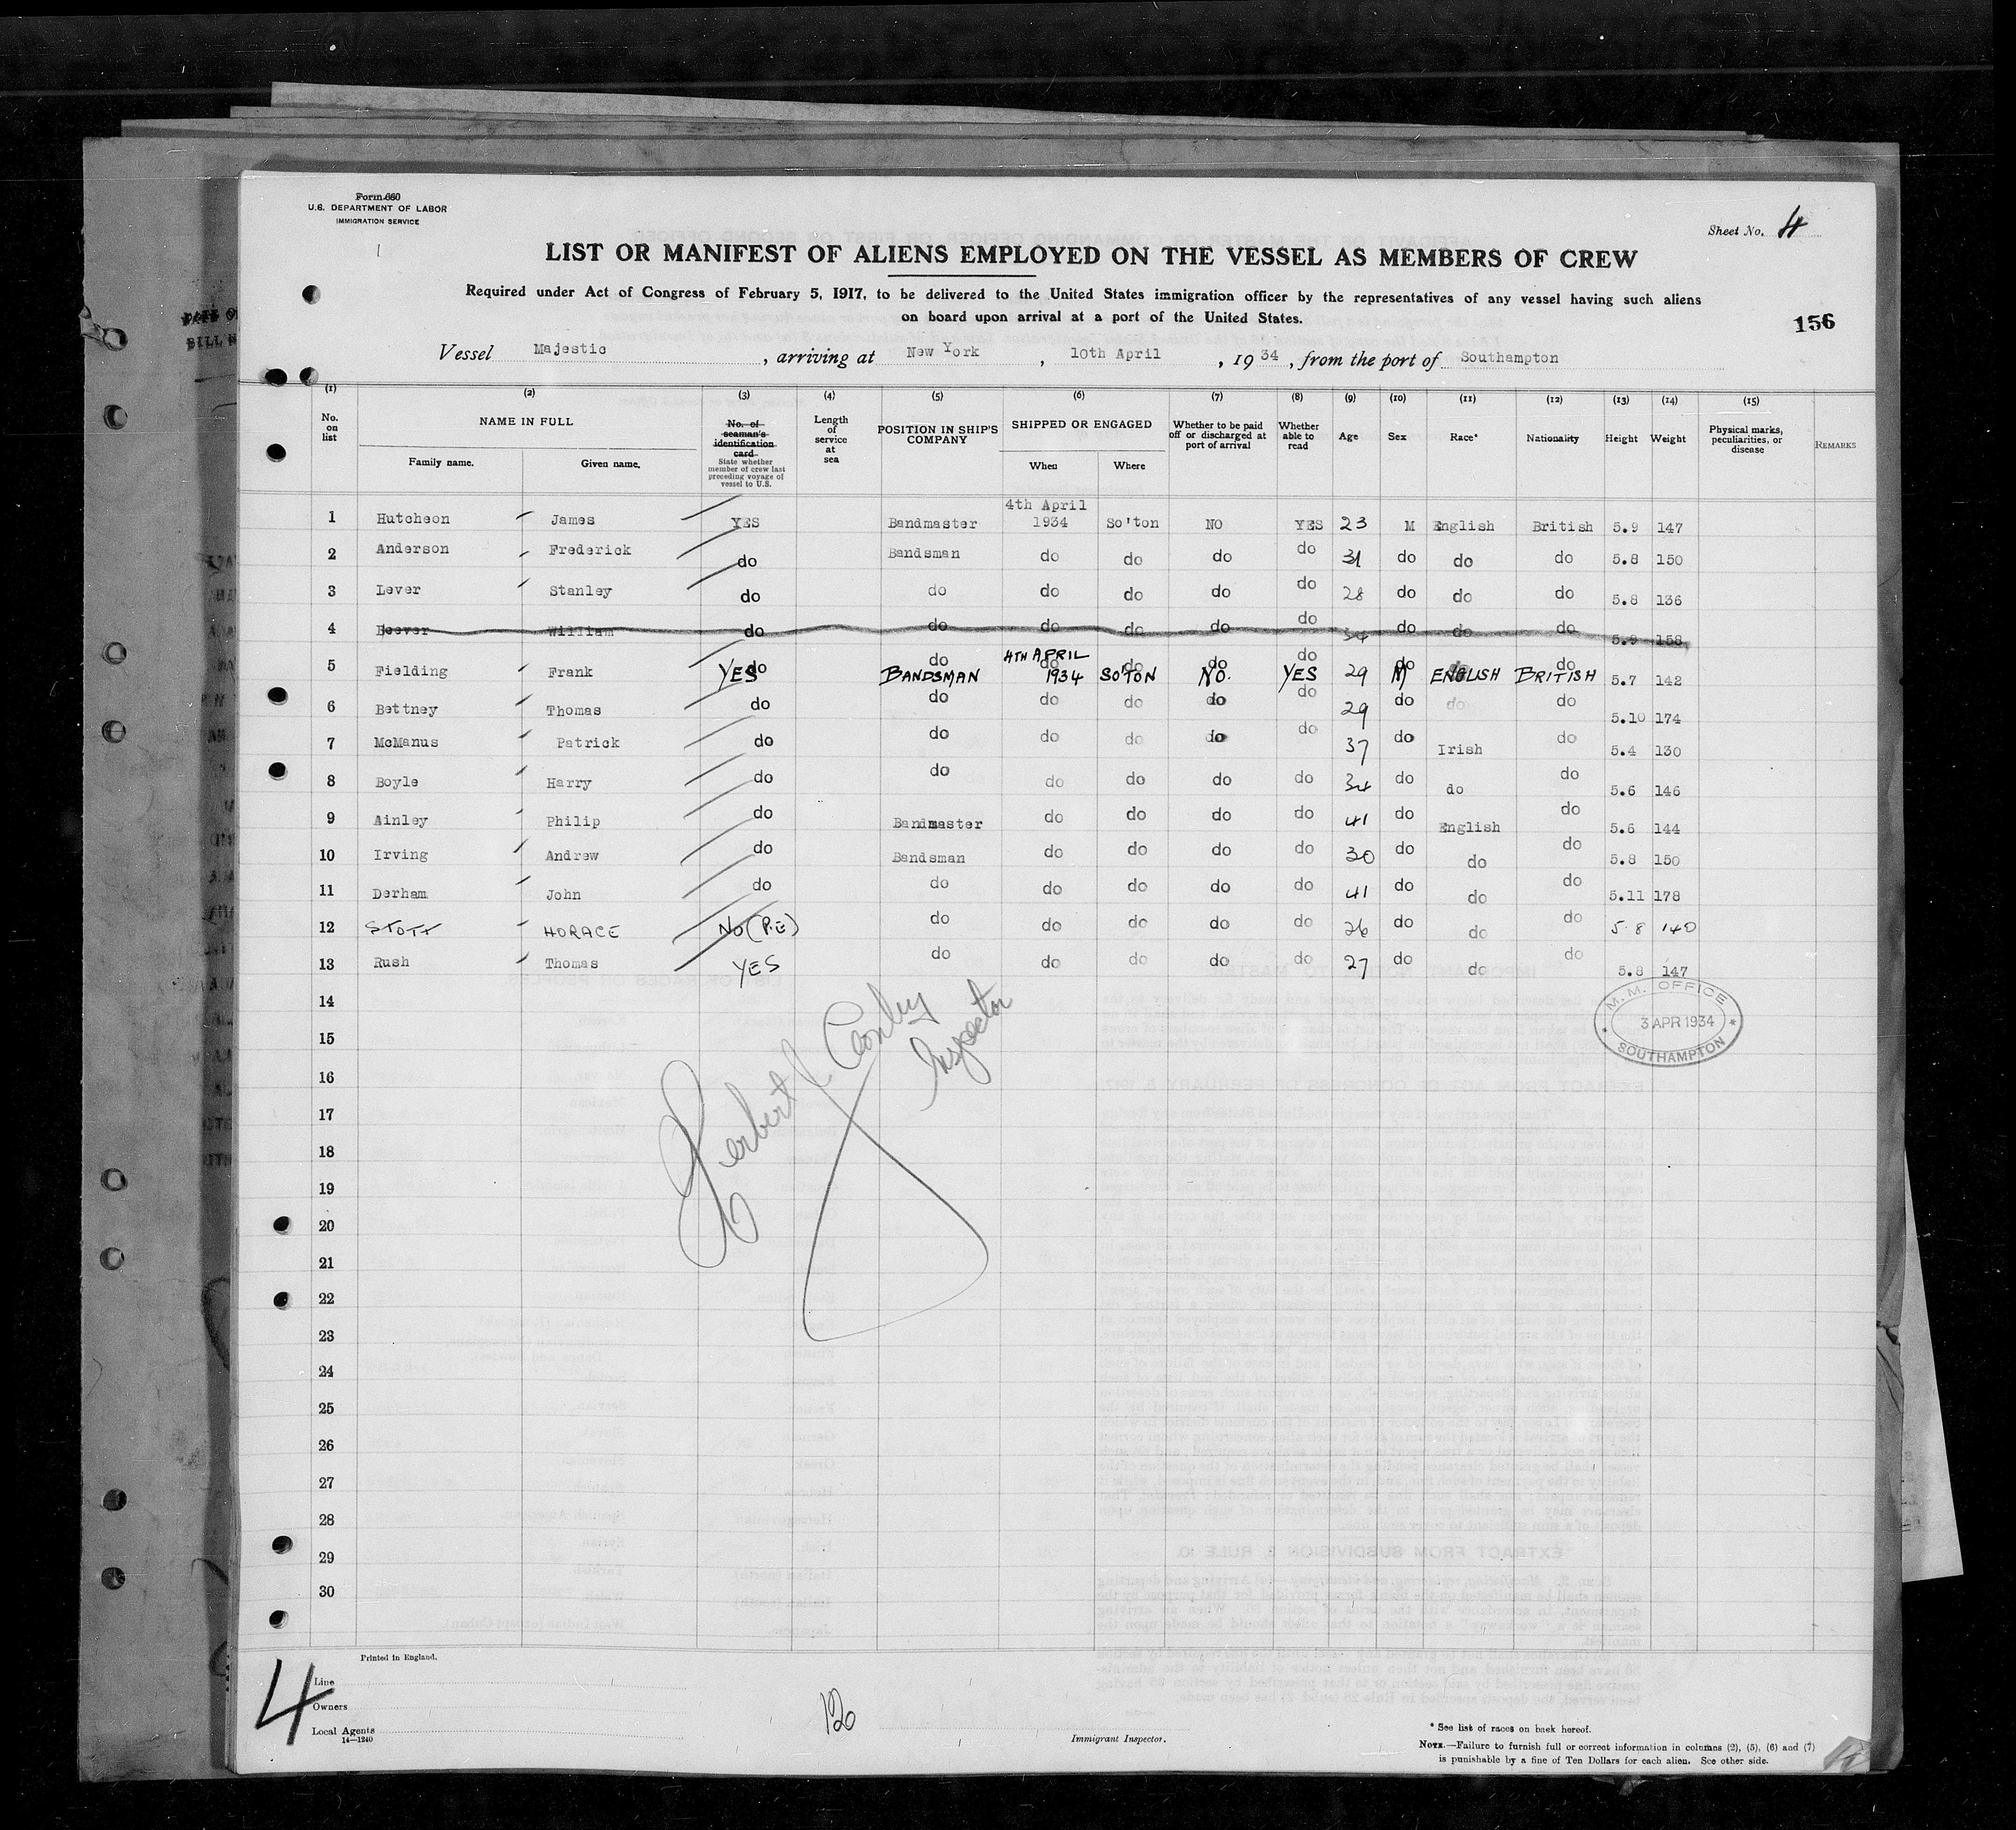 Form 680
U.S. DEPARTMENT OF LABOR
IMMIGRATION SERVICE
Sheet No. 4
LIST OR MANIFEST OF ALIENS EMPLOYED ON THE VESSEL AS MEMBERS OF CREW
Required under Act of Congress of February 5, 1917, to be delivered to the United States immigration officer by the representatives of any vessel having such aliens
on board upon arrival at a port of the United States.
156
Vessel Majestic, arriving at New York, 10th April, 1934, from the port of Southampton
(1) (2) (3) (4) (5) (6) (7) (8) (9) (10) (11) (12) (13) (14) (15)
No. on list NAME IN FULL Family name. Given name. No. of seaman's identification card State whether member of crew last preceding voyage of vessel to U.S. Length of service at sea POSITION IN SHIP'S COMPANY SHIPPED OR ENGAGED When Where Whether to be paid off or discharged at port of arrival Whether able to read Age Sex Race* Nationality Height Weight Physical marks, peculiarities, or disease REMARKS
1 Hutcheon James YES Bandmaster 4th April 1934 So'ton NO YES 23 M English British 5.9 147
2 Anderson Frederick do Bandsman do do do do 31 do do do 5.8 150
3 Lever Stanley do do do do do do 28 do do do 5.8 136
4 Beever William do do do do do do 34 do do do 5.9 158
5 Fielding Frank do YES do BANDSMAN do 4TH APRIL 1934 do SO'TON do NO. do YES 29 do M ENGLISH do BRITISH 5.7 142
6 Bettney Thomas do do do do do do 29 do do do 5.10 174
7 McManus Patrick do do do do do do 37 do Irish do 5.4 130
8 Boyle Harry do do do do do do 34 do do do 5.6 146
9 Ainley Philip do Bandmaster do do do do 41 do English do 5.6 144
10 Irving Andrew do Bandsman do do do do 30 do do do 5.8 150
11 Derham John do do do do do do 41 do do do 5.11 178
12 STOTT HORACE NO (P.E) do do do do do 26 do do do 5.8 140
13 Rush Thomas YES do do do do do 27 do do do 5.8 147
M.M. OFFICE
3 APR 1934
SOUTHAMPTON
14
15
16
Herbert J.
Inspector
17
18
19
20
21
22
23
24
25
26
27
28
29
30
Printed in England.
4
Line
Owners
Local Agents
14—1240
120
Immigrant Inspector.
* See list of races on back hereof.
NOTE.—Failure to furnish full or correct information in columns (2), (5), (6) and (7)
is punishable by a fine of Ten Dollars for each alien. See other side.